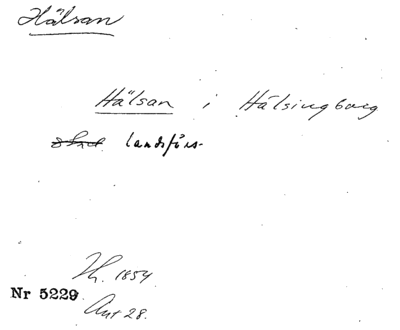 Hälsan
Hälsan i Hälsingborg
landsförs-
Th. 1854
Nr 5229
Ant 28.